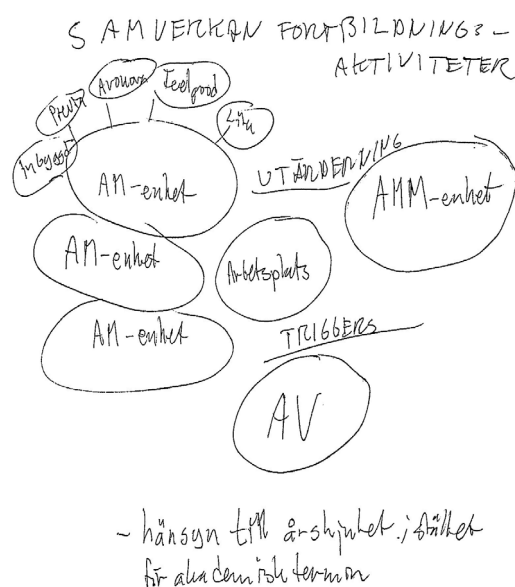 SAMVERKAN FORTBILDNINGS-
AKTIVITETER
Previa
Avonova
Feelgood
Inbyggd
AM-enhet
UTÄRDERNING
AMM-enhet
AM-enhet
Arbetsplats
AM-enhet
TRIGGERS
AV
- hänsyn till årshjulet istället
för akademisk termin